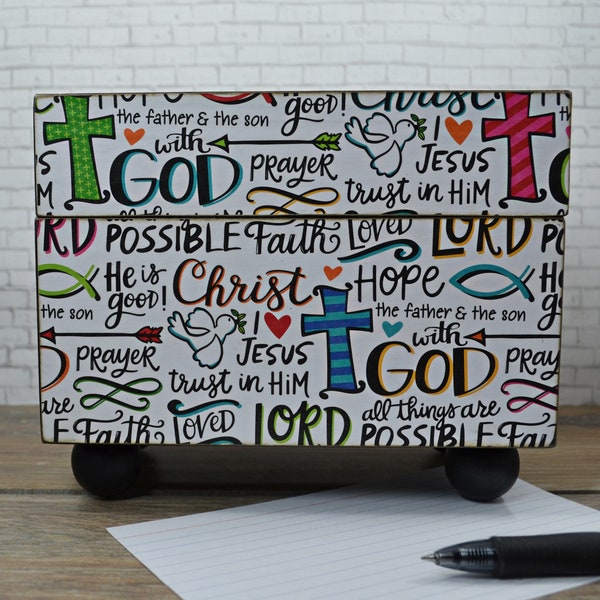 HOPE
good!
Christ
the father & the son
with
GOD
PRAYER
I
JESUS
trust in HIM
HIM
all things are
LORD
POSSIBLE
Faith
LOVED
LORD
POSSIBLE
He is
good!
Christ
HOPE
the father & the son
He is
good!
the son
with
GOD
PRAYER
I
JESUS
trust in HIM
PRAYER
are
LOVED
LORD
all things are
POSSIBLE
Faith